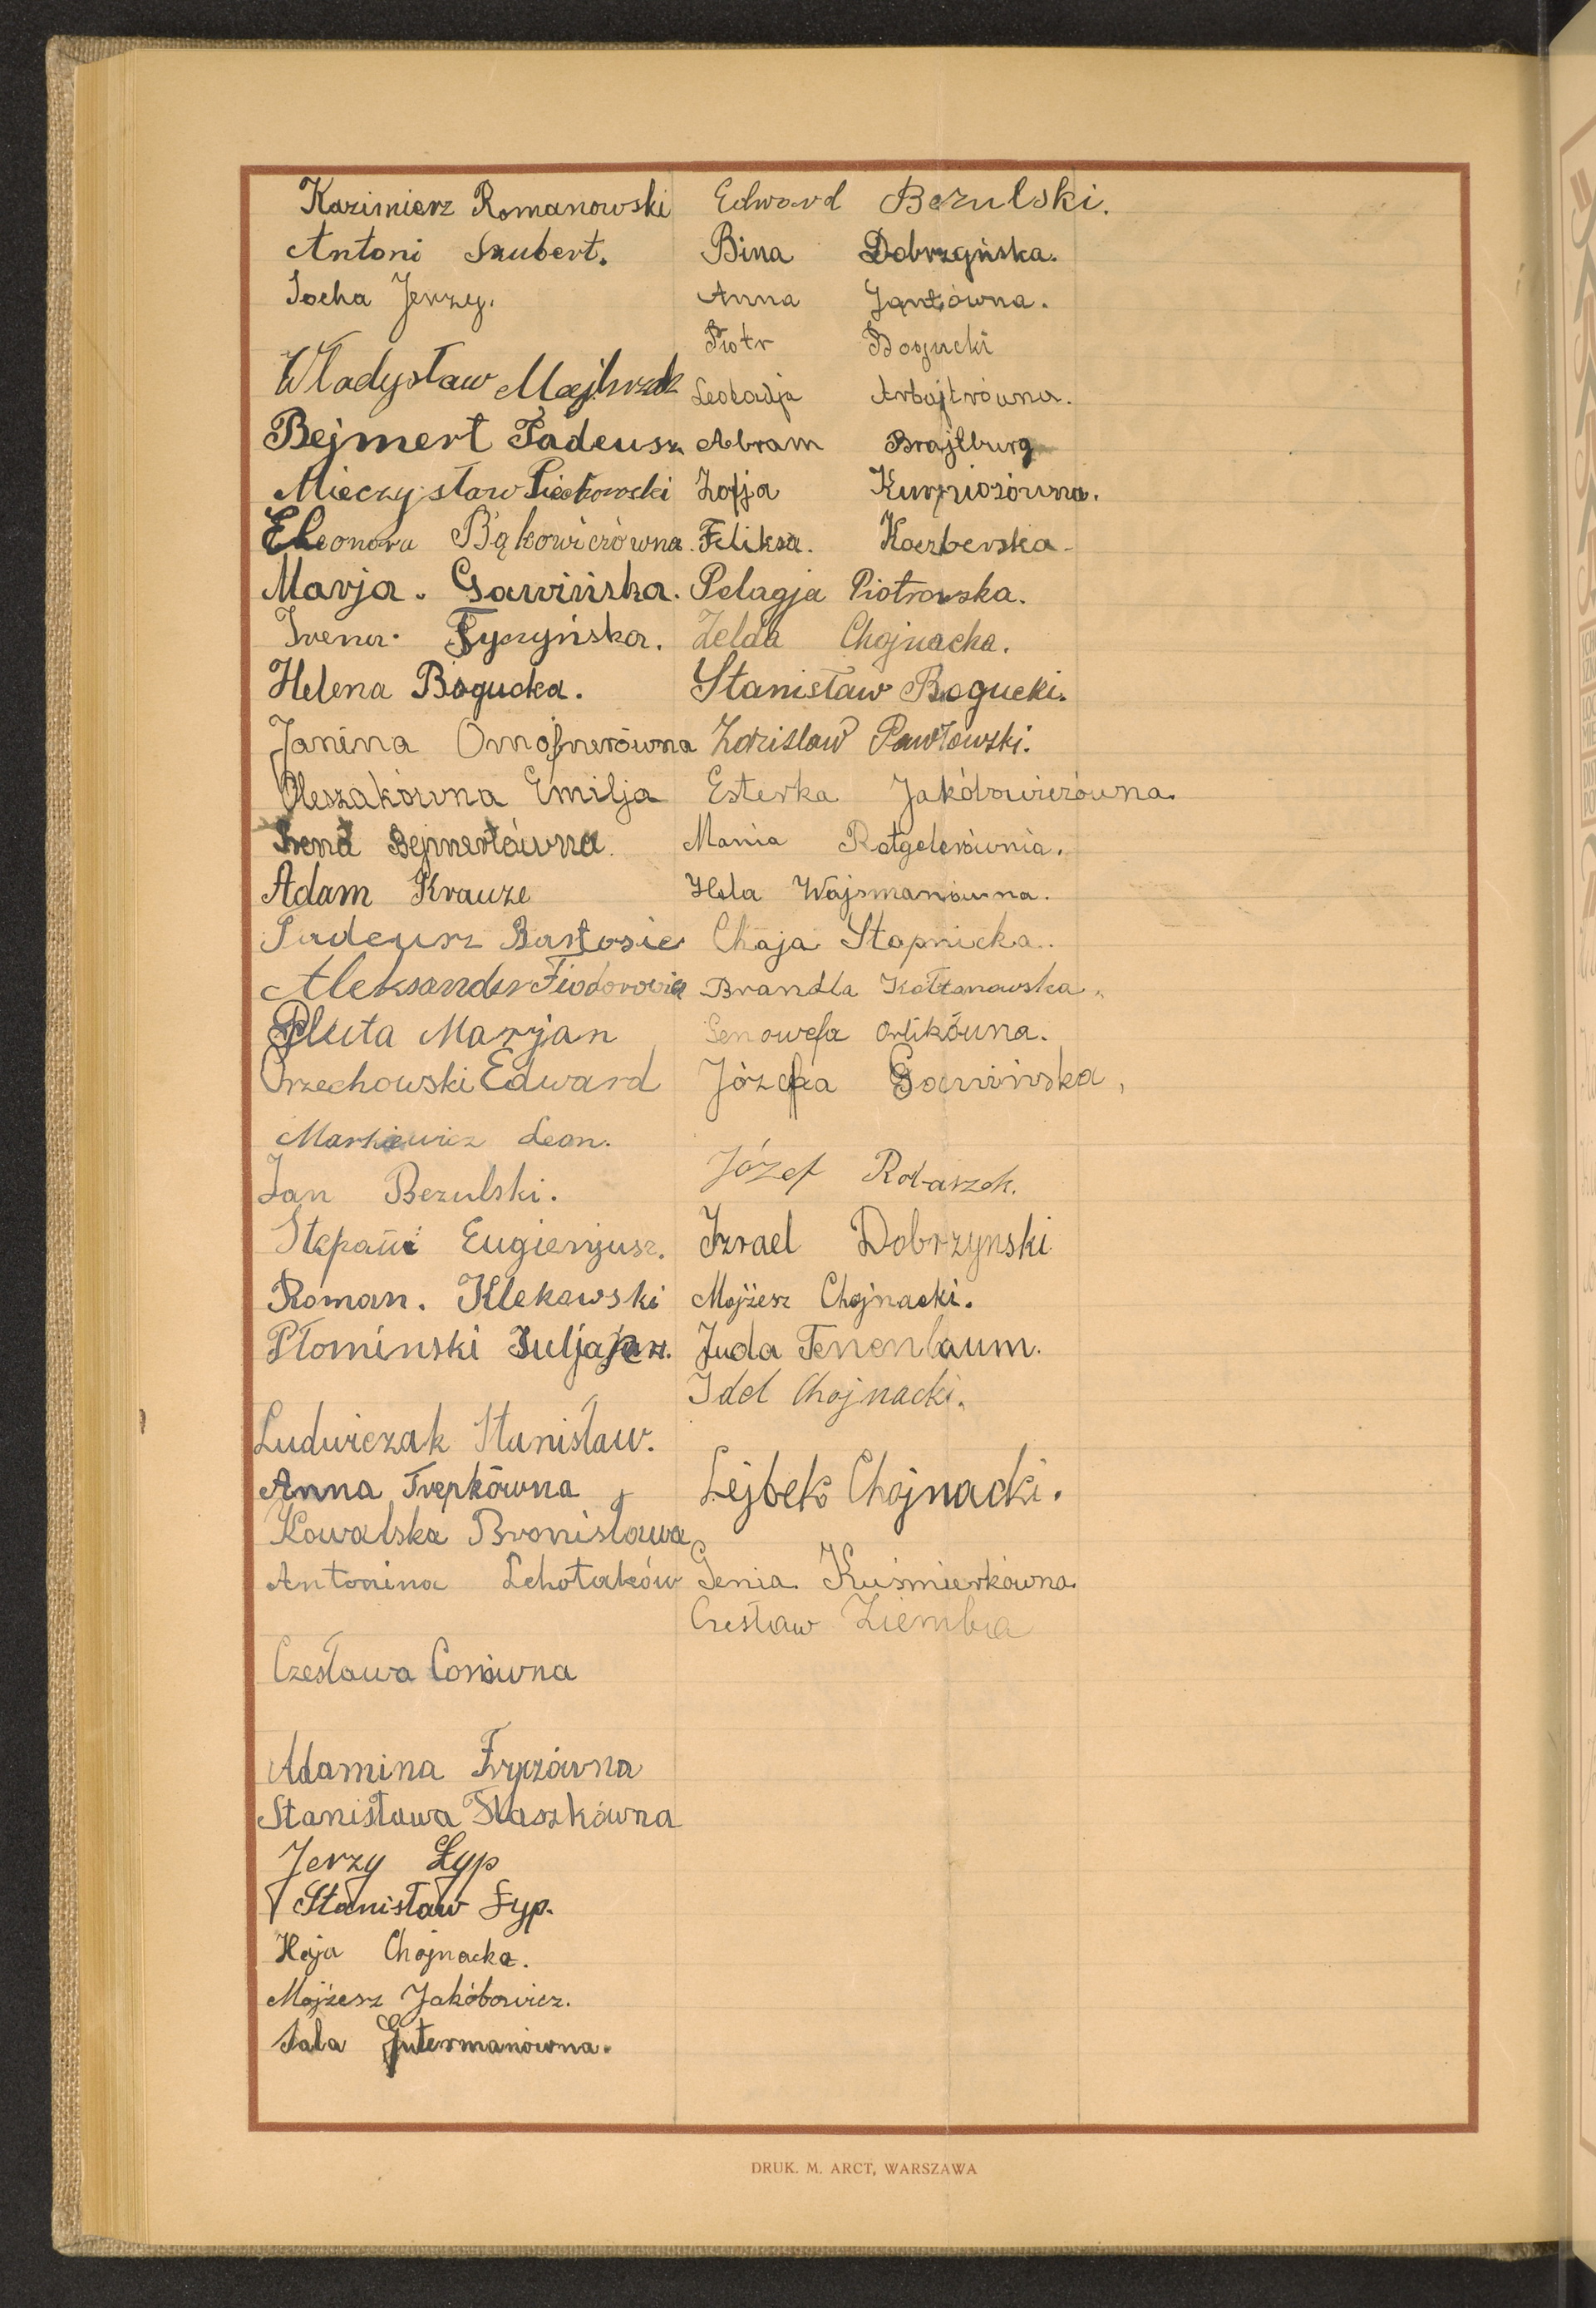 Kazimierz Romanowski
Antoni Szubert.
Socha Jerzy.
Władysław Majhrzak
Bejmert Tadeusz
Mieczysław Piechowski
Eleonora Bąkowiczówna.
Marja. Gawińska.
Irena. Tyczyńska.
Helena Bogucka.
Janina Omofnerówna
Oleszakówna Emilja
Irena Bejmertówna.
Adam Krauze
Tadeusz Bartosie
Aleksander Fiodorowicz
Pluta Marjan
Orzechowski Edward
Markiewicz Leon.
Jan Bezulski.
Stepani Eugienjusz.
Roman. Klekowski
Płominski Juljan.
Ludwiczak Stanisław.
Anna Trepkówna
Kowalska Bronisława
Antonina Lchotaków
Czesława Conówna
Adamina Fryczówna
Stanisława Staszkówna
Jerzy Łyp
Stanisław Łyp.
Haja Chojnacka.
Mojżesz Jakóbowicz.
Sala Gutermanówna.
Edward Bezulski.
Bina Dobrzyńska.
Anna Jantówna.
Piotr Bogucki
Leokadja Arbajtrówna.
Abram Brajtburg
Zofja
Feliksa. Kaczberska.
Pelagja Piotrowska.
Zelda Chojnacka.
Stanisław Bogucki.
Zdzisław Pawłowski.
Esterka Jakóbowiczówna.
Mania Rotgelerównia.
Hela Wajsmanówna.
Chaja Stopnicka.
Brandla Kołtanowska.
Genowefa Orlikówna.
Józefa Gawińska,
Józef Robaszek.
Izrael Dobrzynski
Mojżesz Chojnacki.
Juda Tenenbaum.
Idel Chojnacki.
Lejbek Chojnacki.
Genia Kuśmierkówna.
Czesław Ziemba
DRUK. M. ARCT, WARSZAWA